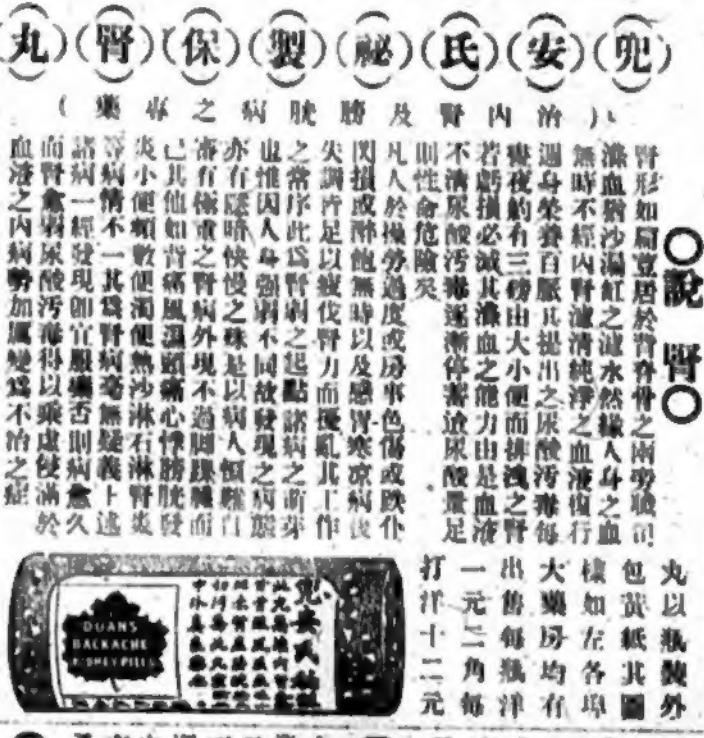 兜安氏祕製保腎丸
(治內腎及膀胱病之專藥)
○說腎○
腎形如扁荳居於背脊骨之兩旁職司
濾血猶沙漏缸之濾水然緣人身之血
無時不經內腎濾清純淨之血液復行
週身榮養百脈其提出之尿酸污毒每
晝夜約有三磅由大小便而排洩之腎
若虧損必減其濾血之能力由是血液
不清尿酸污毒逐漸停蓄迨尿酸量足
則性命危險矣
凡人於操勞過度或房事色傷或跌仆
閃損或醉飽無時以及感冒寒涼病後
失調皆足以疲伐腎力而擾亂其工作
之常序此為腎弱之起點諸病之萌芽
也惟因人身強弱不同故發現之病態
亦有隱暗快慢之殊是以病人慎難自
審有極重之腎病外現不過脚踝腫而
已其他如背痛風濕頭痛心悸膀胱發
炎小便頻數便濁便熱沙淋石淋腎炎
等病情不一其為腎病毫無疑義上述
諸病一經發現卽宜服藥否則病愈久
而腎愈弱尿酸污毒得以乘虛侵滿於
血液之內病勢加厲變為不治之症
丸以瓶裝外
包黃紙其圖
樣如左各埠
大藥房均有
出售每瓶洋
一元二角每
打洋十二元
DOANS
BACKACHE
KIDNEY PILLS
兜安氏祕